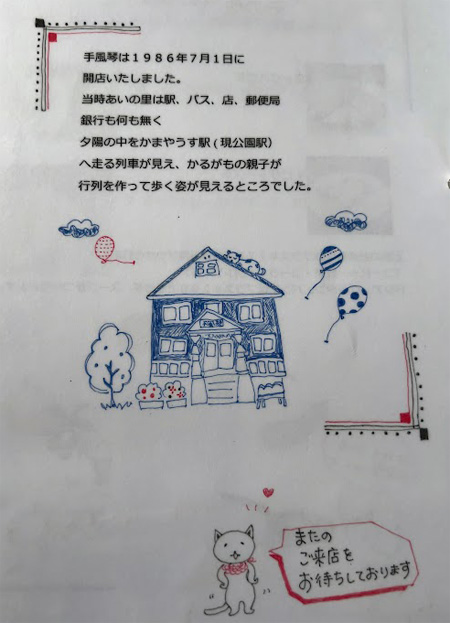 手風琴は１９８６年７月１日に
開店いたしました。
当時あいの里は駅、バス、店、郵便局
銀行も何も無く
夕陽の中をかまやうす駅（現公園駅）
へ走る列車が見え、かるがもの親子が
行列を作って歩く姿が見えるところでした。
またの
ご来店を
お待ちしております